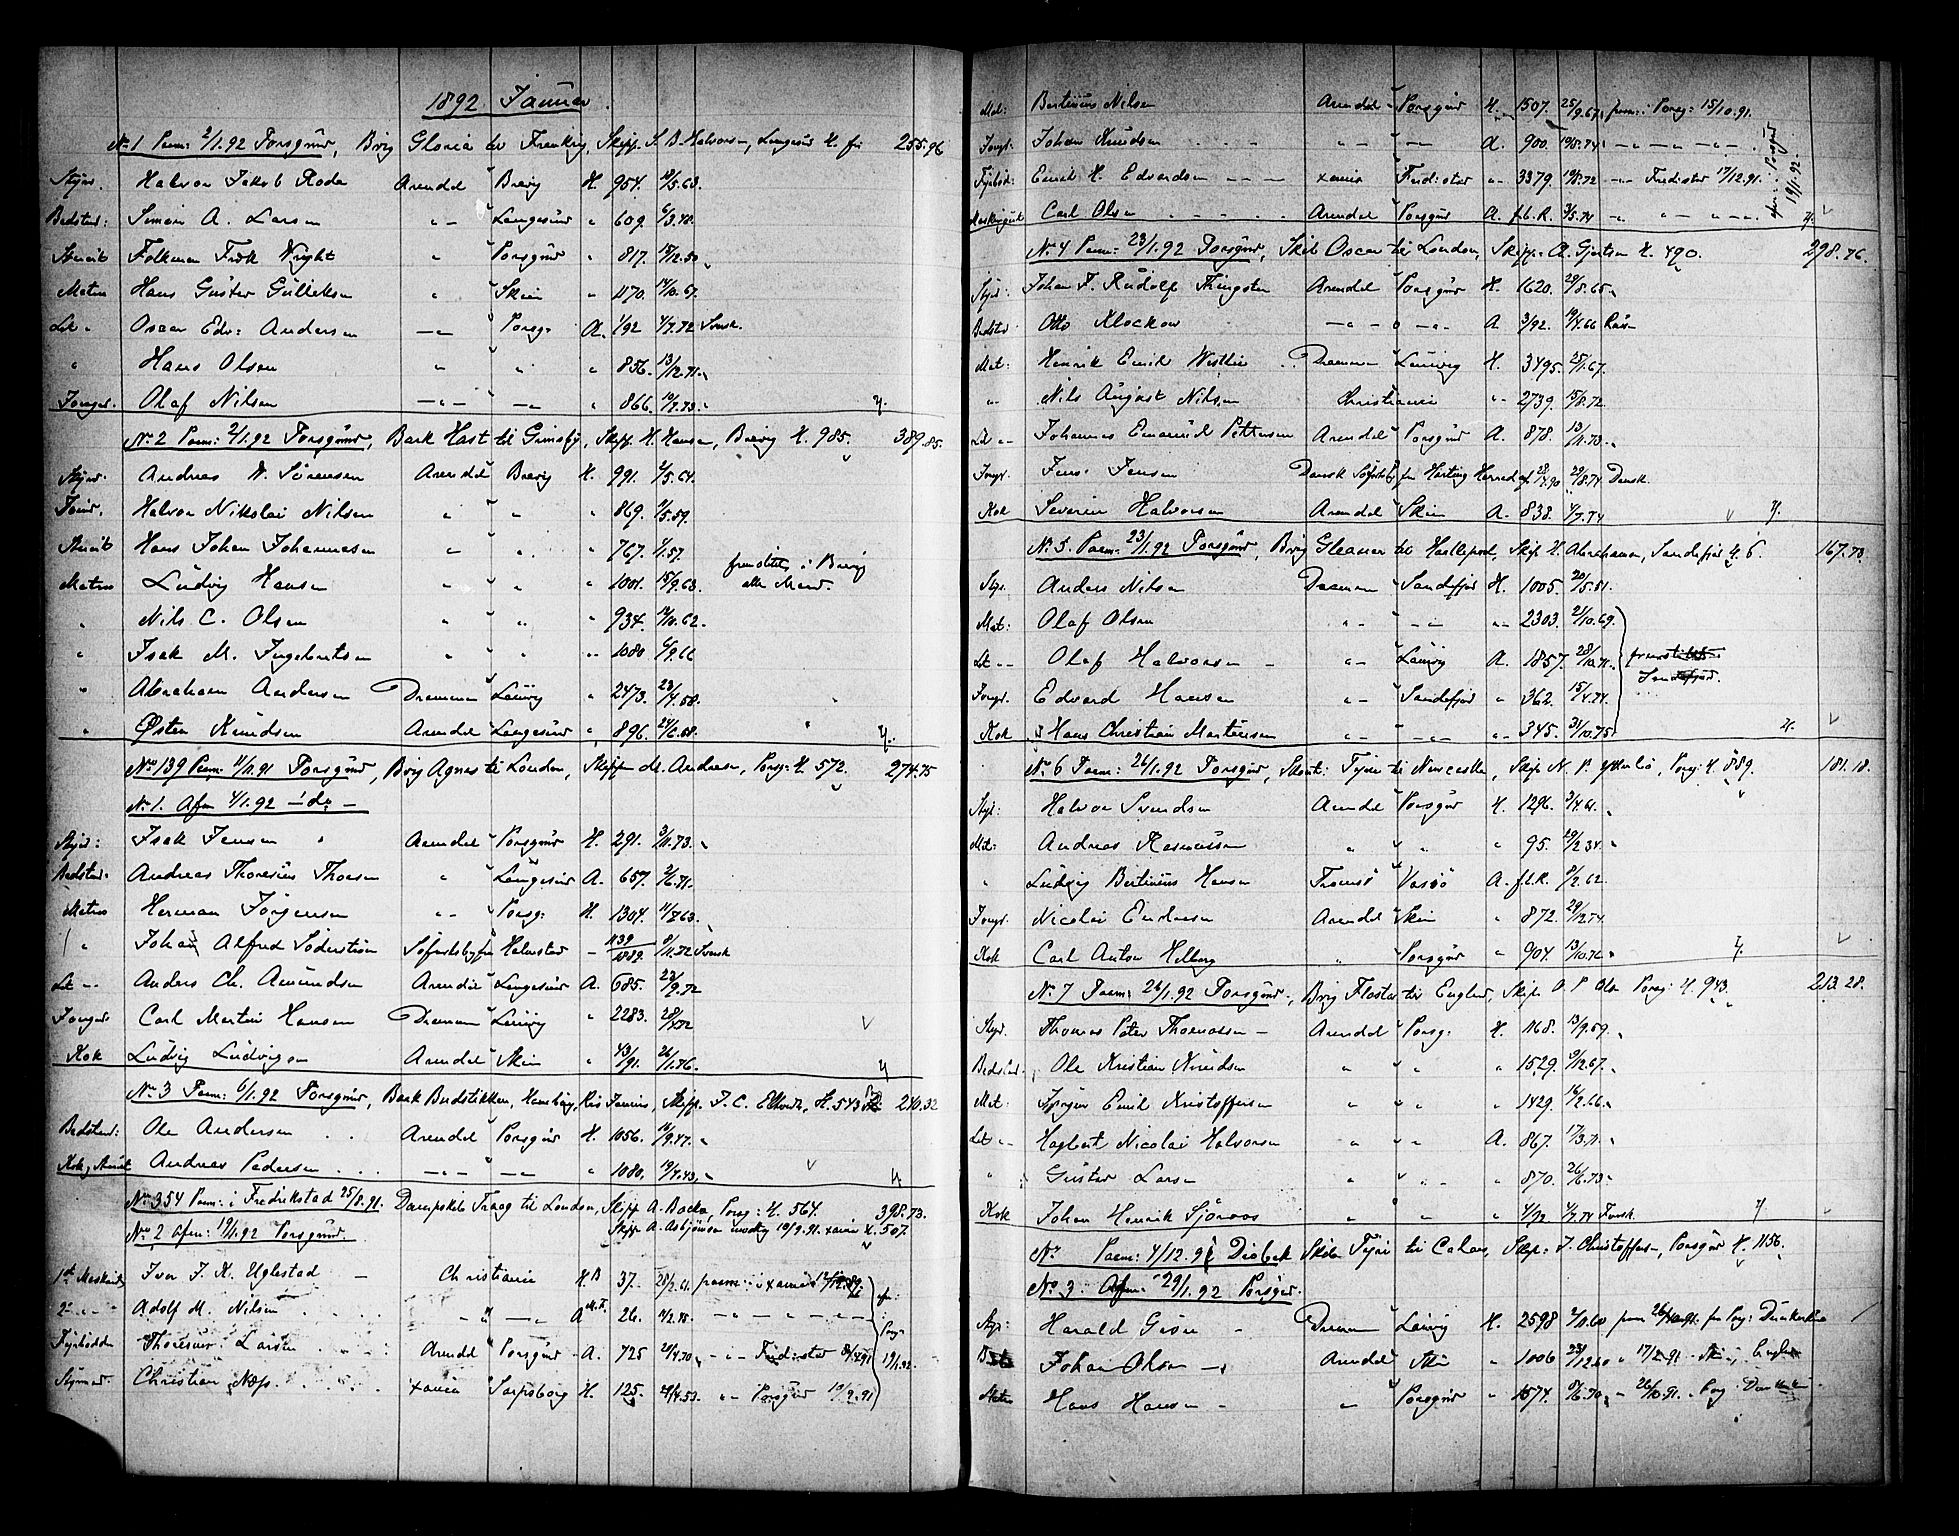 1892 Januar
No 1 Paam: 2/1.92 Porsgrund, Brig Gloria til Frankrig, Skipp. S. B. Halvorsen, Langesund H. 255.96
Styrm. Halvor Jakob Roda Arendal Brevig H. 954. 10/5.63.
Bedstm: Simon A. Larsen " – Langesund " 609. 6/3.48.
Stuert Falkman Fredk Wright " Porsgrund " 817. 17/12.50
Matros Hans Gustav Gulliksen " Skien " 1170. 14/10.67.
Let " Oscar Edv: Andersen – " – Porsg: A. 1/92 4/7.72 Svensk
" Hans Olsen " " " 856. 13/12.71.
Jungm. Olaf Nilsen – " – – " – " 866. 10/7.73.
No 2 Paam: 2/1.92 Porsgrund, Bark Hast til Grimsby, Skipp. H. Hansen, Brevig H. 985. 389.85.
Styrm. Andreas W. Sørensen Arendal Brevig H. 991. 6/5.64.
Tømr. Halvor Nikolai Nilsen " " " 869. 9/5.59.
Stuert Hans Johan Johannesen " " " 767. 1/1.57.
Matros Ludvig Hansen " " " 1001. 15/9.63. i Brevig alle Mand.
" Nils C. Olsen " " " 934. 14/10.62.
" Isak M. Ingebretsen " " " 1080 6/9.66
" Abraham Andersen Drammen Laurvig " 2473. 23/4.58.
" Østen Knudsen Arendal Langesund " 896. 24/6.58.
No 139 Paam: 11/11.91 Porsgrund, Brig Agnes til London, Skipper M. Andresen, Porsg: H. 572. 274.75
No 1. Afm 4/1.92 – do –
Styrm: Isak Jensen Arendal Porsgrund H. 291. 3/11.73.
Bedstm. Andreas Thoresius Thorsen " Langesund A. 657. 2/6.71.
Matros Herman Jörgensen " – Porsg: H. 1304. 11/7.63.
" Johan Alfred Söderström Halmstad – 1139/1889. 8/11.72 Svensk
Let – " – Anders Ch. Amundsen Arendal Langesund A. 685. 22/9.72
Jungm. Carl Martin Hansen Drammen Laurvig " 2283. 28/4.72
Kok Ludvig Ludvigsen Arendal Skien " 43/91. 26/1.76.
No 3 Paam: 6/1.92 Porsgrund, Bark Budstikken, Skipp. J. C. H. 543 240.32
Bedstm: Ole Andersen Arendal Porsgrund H. 1056. 11/9.47.
Kok & Stuert Andreas Pedersen – " – – " – " 1080. 19/4.43.
No 354 Paam: i Fredrikstad 25/8.91. Dampskib Traag til London, Skipp. A. Backe, Porsg: H. 564. 398.73.
No 2 Afm: 19/1.92 Porsgrund. Skipp. A. Asbjørnsen modtog 10/9.91. xania H. 507.
1ste Maskinist Iver J. K. Uglestad Christiania H B 37. 28/2.61. paam: i xania 12/12.89.
2den – " – Adolf M. Nilsen " – " – A M.F. 26. 4/2.45. – " – " – " –
Fyrbøder Thoresius Larsen Arendal Porsgrund A. 725 20/4.70. – " – Fredrikstad 8/4.91 Porsg: 19/1.92.
Fyrbøder Christian Næss xania Sarpsborg H. 125. 29/4.53. " – Porsgrund 10/9.91
Mat: Bertinius Nilsen Arendal Porsgrund H. 1507. 25/9.67. paam: i Porsg: 15/10.91.
Jungm. Johan Knudsen – " – – " – A. 900. 19/5.74 – " – " – " –
Fyrbød: Emil H. Edvardsen xania Fredrikstad " – 3379. 19/5.72 – " – Fredrikstad 17/12.91.
Carl Olsen Arendal Porsgrund A. f.b.R. 3/5.74 – " – " – " –
afm: i Porsgrund 19/1.92.
No 4 Paam: 23/1.92 Porsgrund, Skib Oscar til London, Skipp. A. Gjertsen H. 490. 298.76.
Styrm: Johan F. Rudolf Thingsten Arendal Porsgrund H. 1620. 29/8.65.
Bedstm. Otto Klockow – " – " – " – A. 3/92. 19/4.66 Russ
Mat: Henrik Emil Westlie Drammen Laurvig H. 3495. 25/1.67.
" Nils August Nilsen Christiania " – 2739. 15/8.72.
Let – " – Johannes Emanuel Pettersen Arendal Porsgrund A. 878. 13/11.73.
Jungm. Jens Jensen Dansk Søfartsb. fra Herred af 28/4.90 22/8.74 Dansk.
Kok Severin Halvorsen Arendal Skien A. 838. 4/7.74
No 5. Paam: 23/1.92 Porsgrund, Brig Gleaner til Hartlepool, Skip H. Abrahamsen, Sandefjord H. 6. 167.73.
Styrm. Anders Nilsen Drammen Sandefjord H. 1005. 20/5.51.
Mat: Olaf Olsen " – – " – " – 2303. 21/10.69.
Let – " – Olaf Halvorsen " – Laurvig A. 1857. 28/10.71. Sandefjord.
Jungm. Edvard Hansen " – Sandefjord " 362. 15/4.74.
Kok Hans Christian Martinsen " – – " – " – 345. 31/10.75.
No 6 Paam: 26/1.92 Porsgrund, Skonnert Tyri til Newcastle, Skip N. P. Porsg: H. 889. 181.18.
Styrm: Halvor Svendsen Arendal Porsgrund H. 1296. 3/4.61.
Mat: Andreas Rasmussen " " " 95. 29/2.34.
" Ludvig Bertinius Hansen Tromsø Vardø A. f.b.R. 9/2.62.
Jungm. Nicolai Endresen Arendal Skien " 872. 29/12.74.
Kok Carl Anton Helberg " Porsgrund " 904. 13/10.76.
No 7 Paam: 26/1.92 Porsgrund, Brig Flosta til England, Skip. O. P. Olsen Porsg: H. 943. 213.28.
Styrm. Thomas Peter Thomassen – Arendal Porsg: H. 1168. 13/9.59.
Bedstm. Ole Kristian Knudsen " " " 1529. 9/12.67.
Mat: Jørgen Emil Kristoffersen " " " 1429. 16/2.66.
Let – " – Hagbart Nicolai Halvorsen " " A. 867. 17/3.71.
" Gustav Larsen " " " 870. 26/6.73.
Kok Johan Henrik Sjöroos " " " 4/92 4/7.74 Finsk.
No Paam: 4/12.91 i Skib Tyri til Calais, Skip: J. Christoffersen, Porsgrund H. 1156.
No 3: Afm: 29/1.92 Porsgr.
Styrm: Harald Drammen Laurvig H. 2598 9/10.60 paam 26/10.91. fra Porsg: Dunkerke
Johan Olsen Arendal " 1006 23/12.50 " 17/2.91. England
Matros Hans Hansen – " Porsgrund " 1574. 8/6.70. " 26/10.91. Porsg: